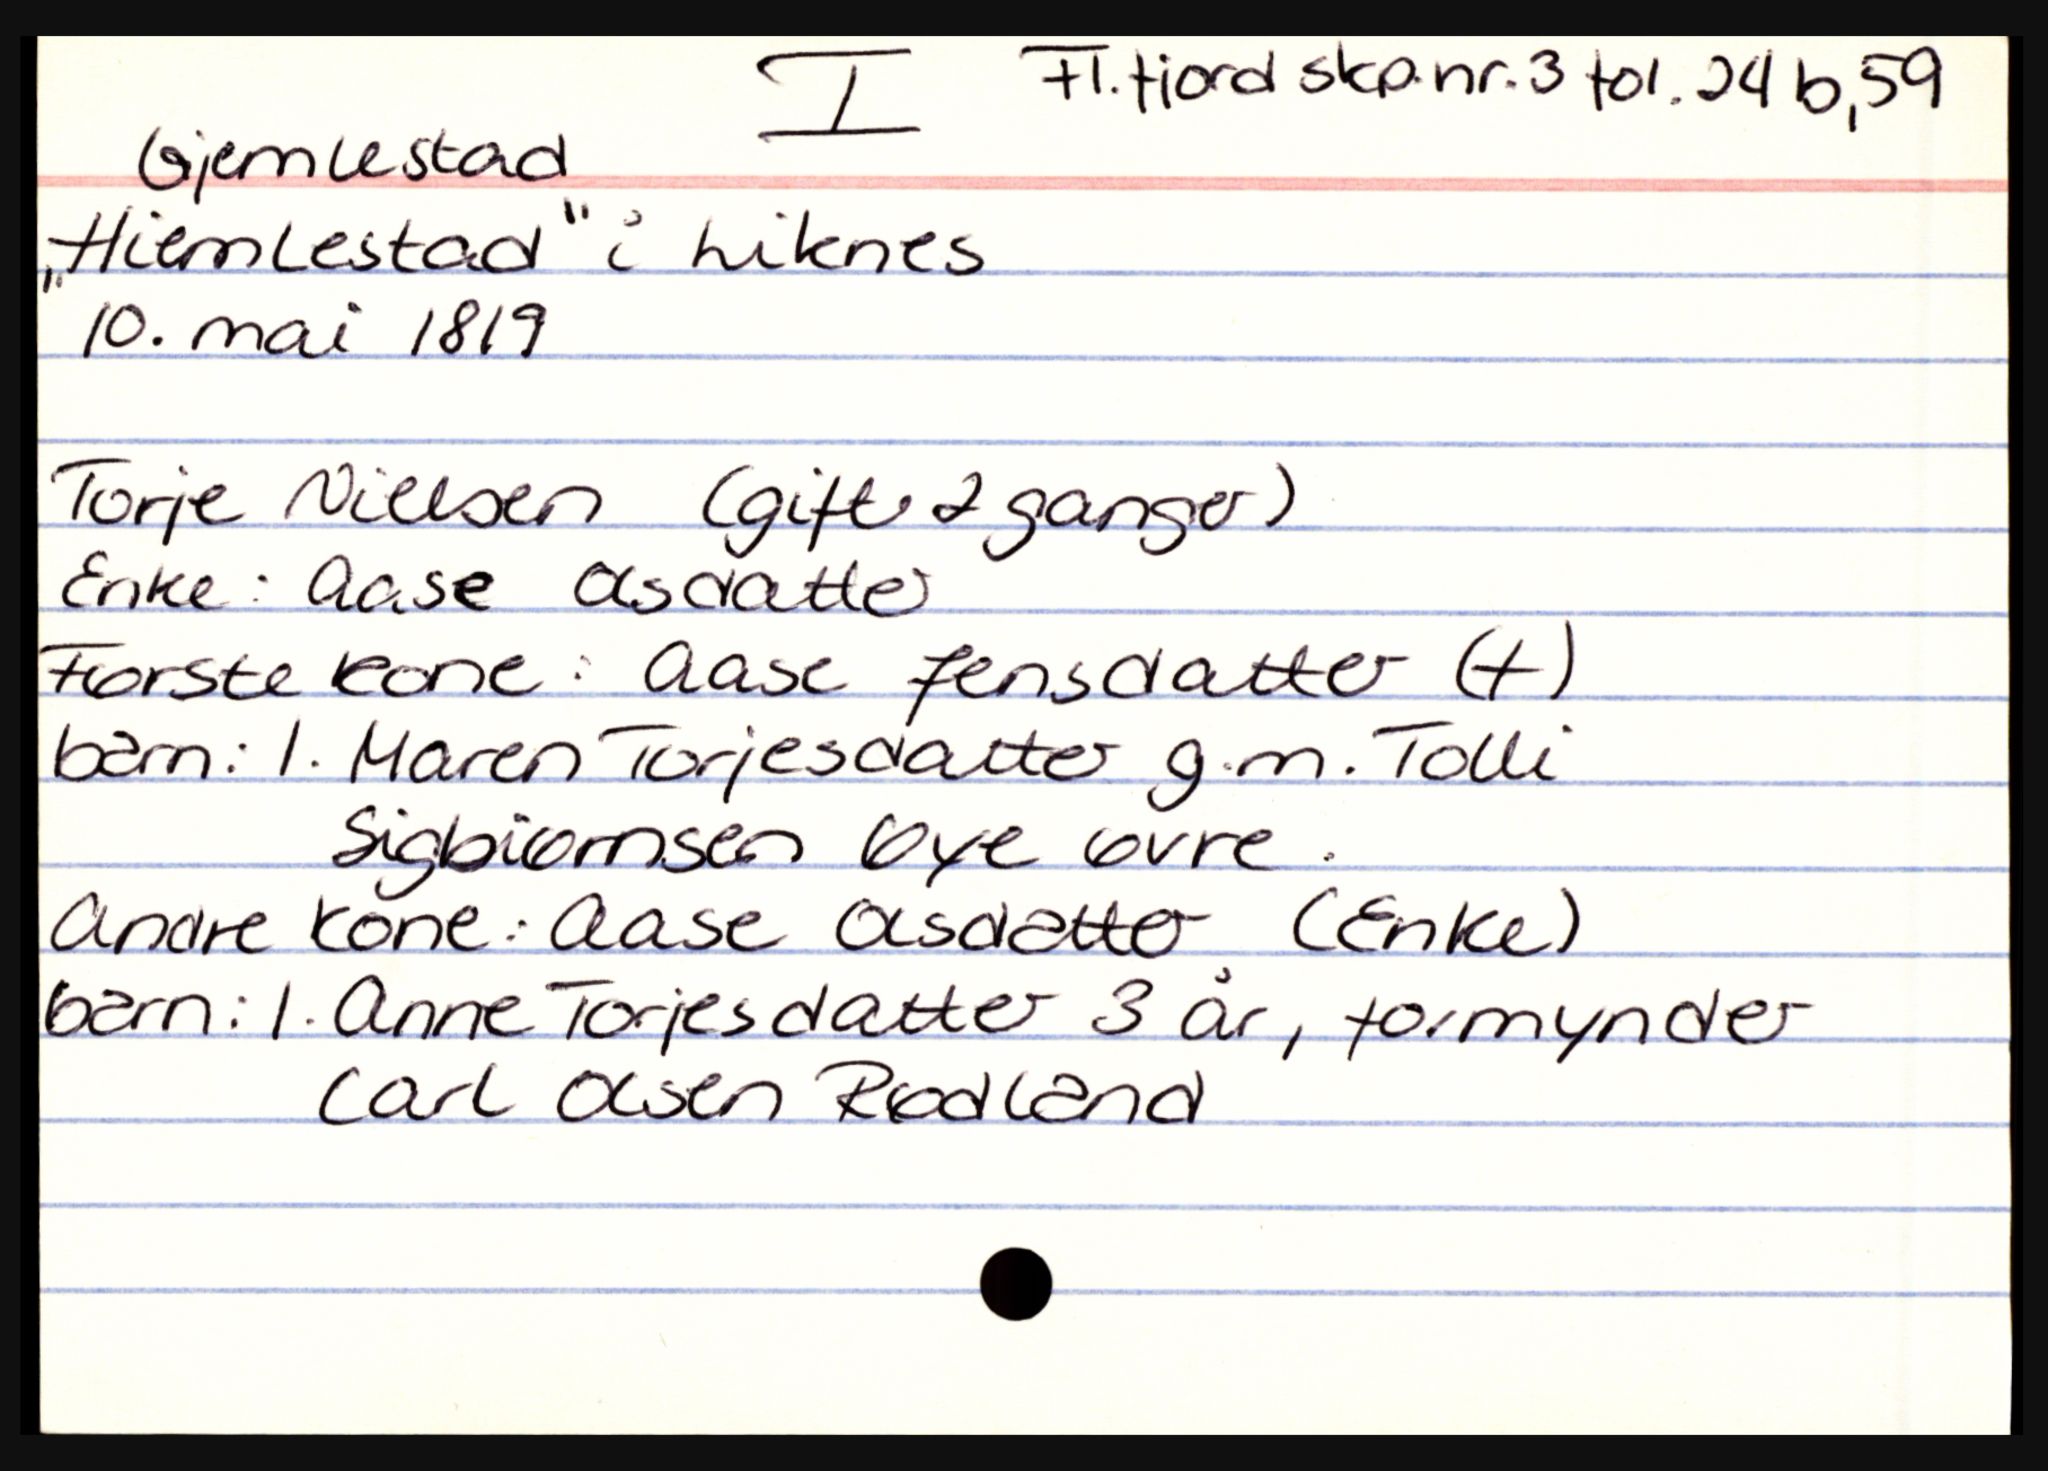 I Fl.fjord skp.nr.3 fol. 24 b, 59
Gjemlestad
„Hiemlestad" i Liknes
10. mai 1819
Torje Nielsen (gift 2 ganger)
Enke: Aase Olsdatter
Første kone: Aase Jensdatter (†)
barn: 1. Maren Torjesdatter g.m. Tolli
Sigbiørnsen Øye øvre.
Andre kone: Aase Olsdatter (Enke)
barn: 1. Anne Torjesdatter 3 år, formynder
Carl Olsen Rødland